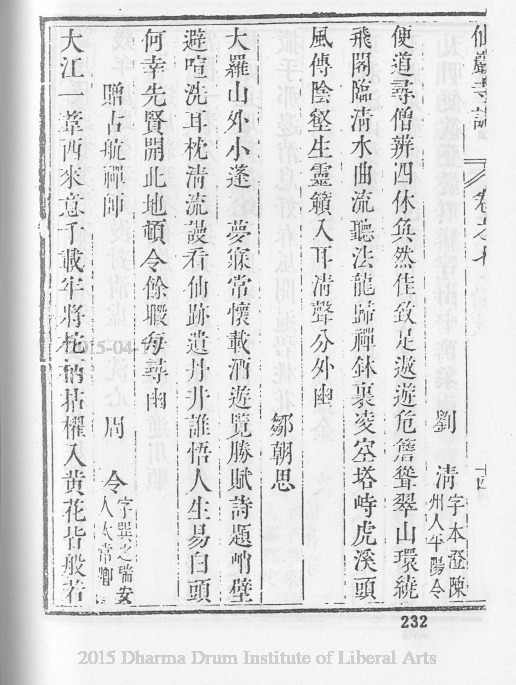 仙巖寺誌 卷之十 十四
劉 清 字本澄陳州人平陽令
便道尋僧辨四休奐然佳致足遨遊危簷聳翠山環繞
飛閣臨清水曲流聽法龍歸禪鉢裏凌空塔峙虎溪頭
風傳陰壑生靈籟入耳淸聲分外幽
鄒朝思
大羅山外小蓬 夢寐常懷載酒遊覽勝賦詩題峭壁
避喧洗耳枕清流謾看仙跡遺丹井誰悟人生易白頭
何幸先賢開此地頓令餘暇每尋幽
贈古航禪師 周 令 字巽之瑞安人太常卿
大江一葦西來意千載牢將柁 拈櫂入黄花皆般若
2015-04-1
232
2015 Dharma Drum Institute of Liberal Arts